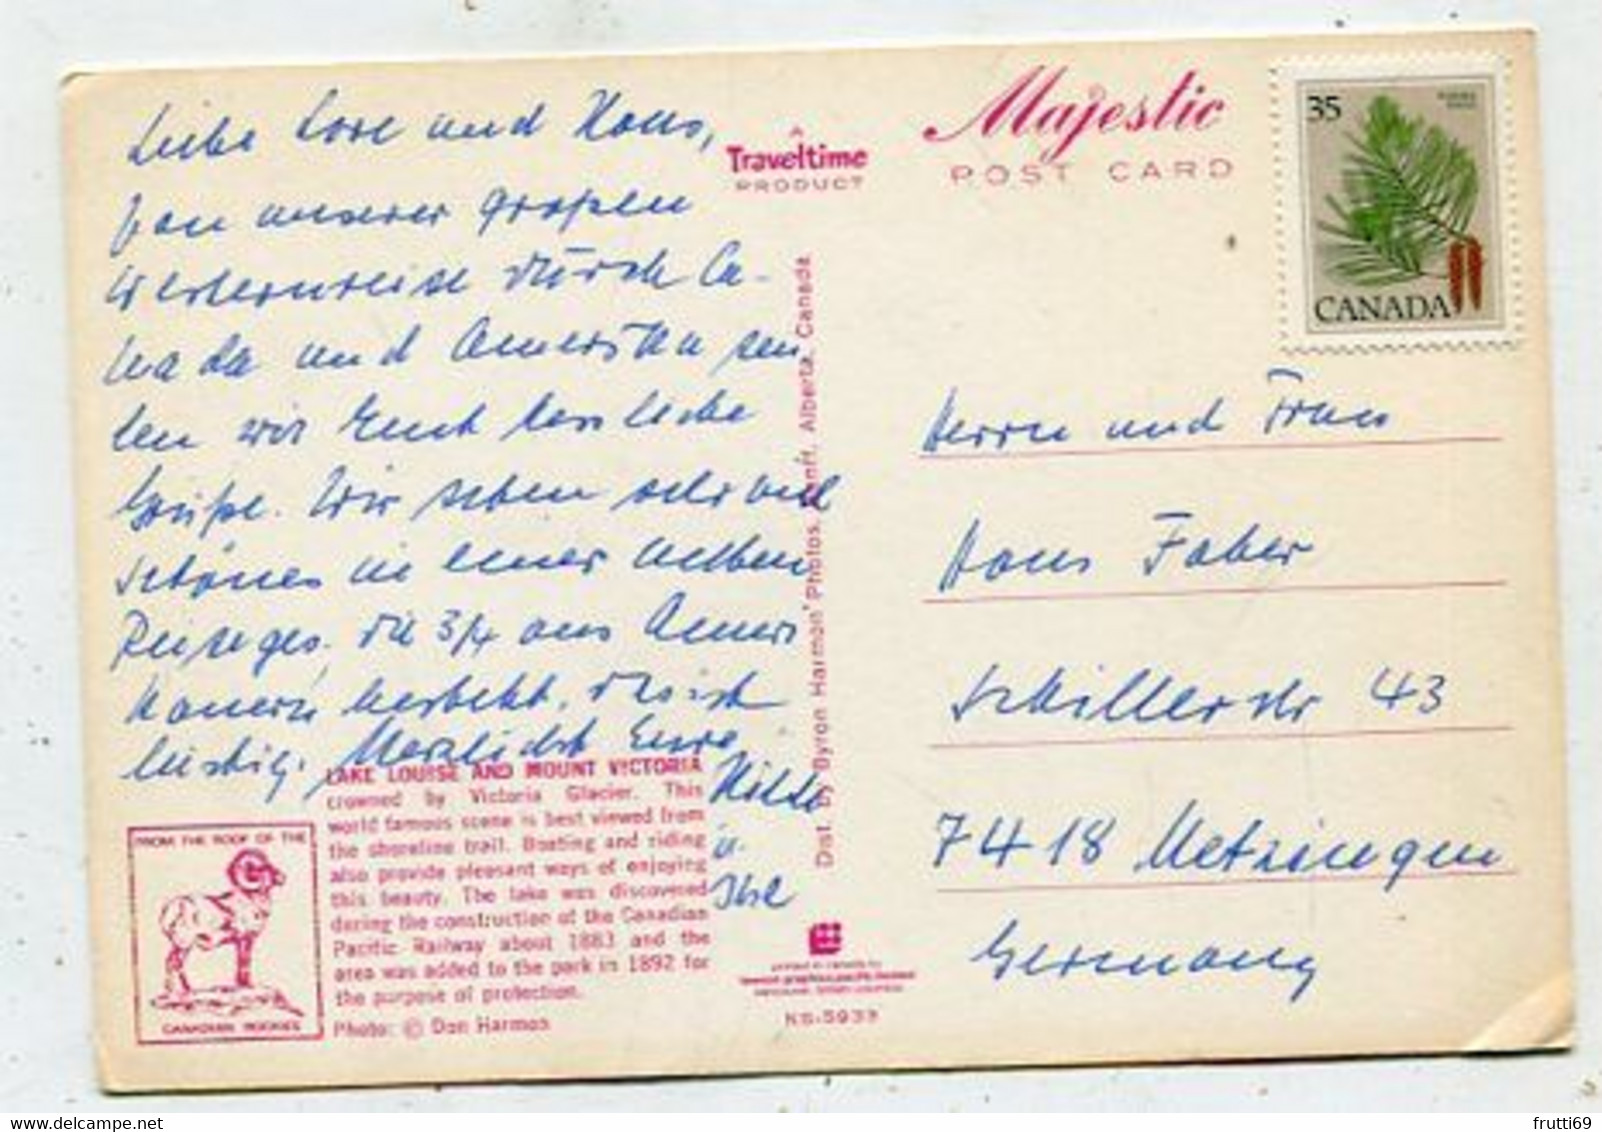 Liebe Lore und Hans,
von unserer großen
Westernreise durch Ca-
nada und Amerika sen
den wir Euch herzliche
Grüße. Wir sehen sehr viel
Schönes in einer netten
Reiseges. die 3/4 aus Ameri
kanern besteht. Das ist
lustig. Herzlichst Eure
Hilde
u.
A
Traveltime
PRODUCT
Majestic
POST CARD
35
CANADA
Herrn und Frau
Hans Faber
Schillerstr 43
7418 Metzingen
Germany
Dist. by Byron Harmon Photos, Banff, Alberta, Canada
LAKE LOUISE AND MOUNT VICTORIA
crowned by Victoria Glacier. This
world famous scene is best viewed from
the shoreline trail. Boating and riding
also provide pleasant ways of enjoying
this beauty. The lake was discovered
during the construction of the Canadian
Pacific Railway about 1883 and the
area was added to the park in 1892 for
the purpose of protection.
Photo: © Don Harmon
FROM THE ROOF OF THE
CANADIAN ROCKIES
printed in canada by
KB-5939
frutti69